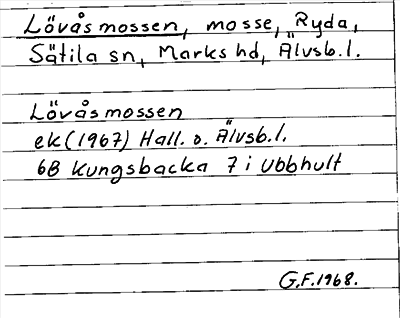 Lövåsmossen, mosse, Ryda,
Sätila sn, Marks hd, Älvsb.l.
Lövåsmossen
ek (1967) Hall. o. Älvsb.l.
6B Kungsbacka 7 i Ubbhult
G.F. 1968.